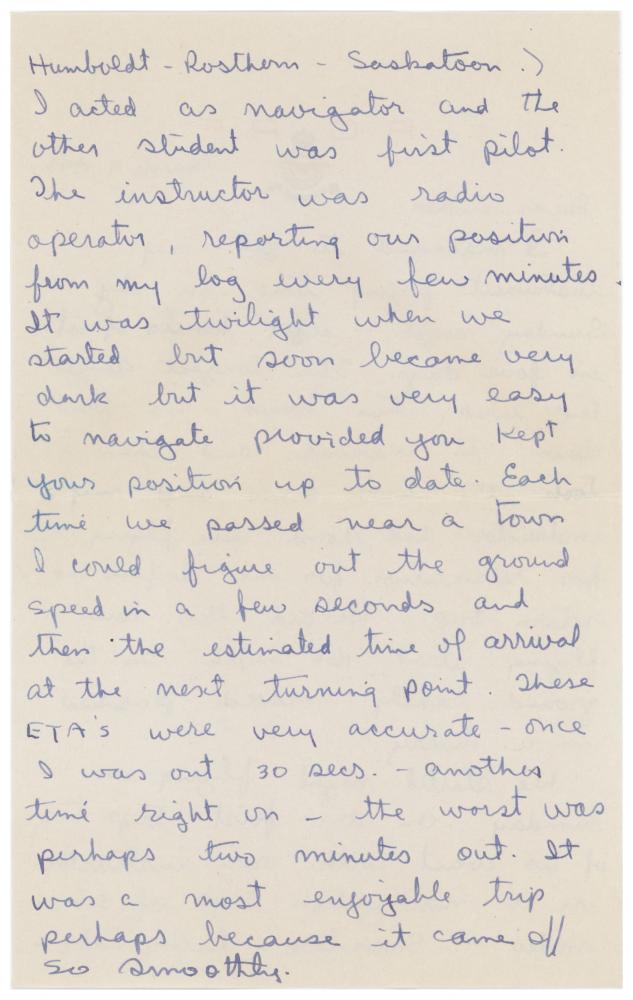 Humboldt - Rosthern - Saskatoon.)
I acted as navigator and the
other student was first pilot.
The instructor was radio
operator, reporting our position
from my log every few minutes.
It was twilight when we
started but soon became very
dark but it was very easy
to navigate provided you kept
your position up to date. Each
time we passed near a town
I could figure out the ground
speed in a few seconds and
then the estimated time of arrival
at the next turning point. These
ETA's were very accurate - once
I was out 30 secs. - another
time right on - the worst was
perhaps two minutes out. It
was a most enjoyable trip
perhaps because it came off
so smoothly.